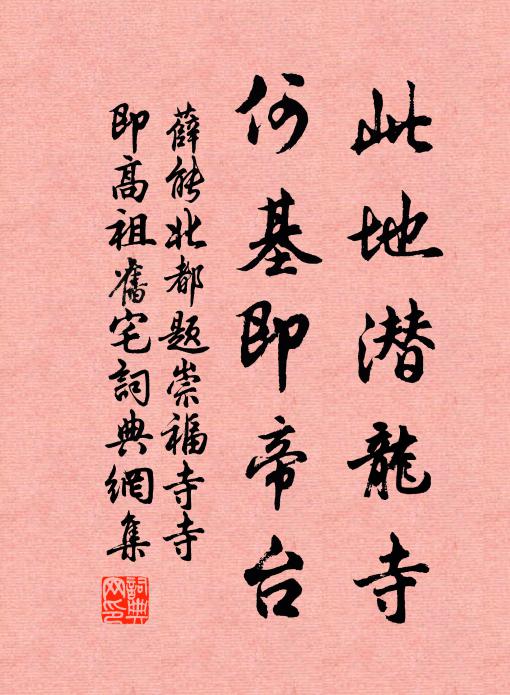 此地潜龍寺
何基即帝台
薛能北都題崇福寺寺
即高祖舊宅詞典網集
詞典网印